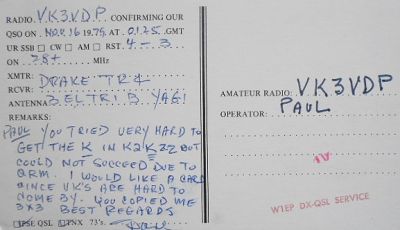 RADIO VK3VDP CONFIRMING OUR
QSO ON NOV. 16 1979 AT 0125 GMT
UR SSB CW AM RST 4-3
ON 28+ MHz
XMTR:
RCVR: DRAKE TR4
ANTENNA 3 EL TRI B YAGI
REMARKS:
PAUL YOU TRIED VERY HARD TO
GET THE K IN K2KZZ BUT
COULD NOT SUCCEED DUE TO
QRM. I WOULD LIKE A CARD
SINCE VK'S ARE HARD TO
COME BY. YOU COPIED ME
3X3 BEST REGARDS
PSE QSL TNX 73's.
AMATEUR RADIO: VK3VDP
OPERATOR: PAUL
W1EP DX-QSL SERVICE